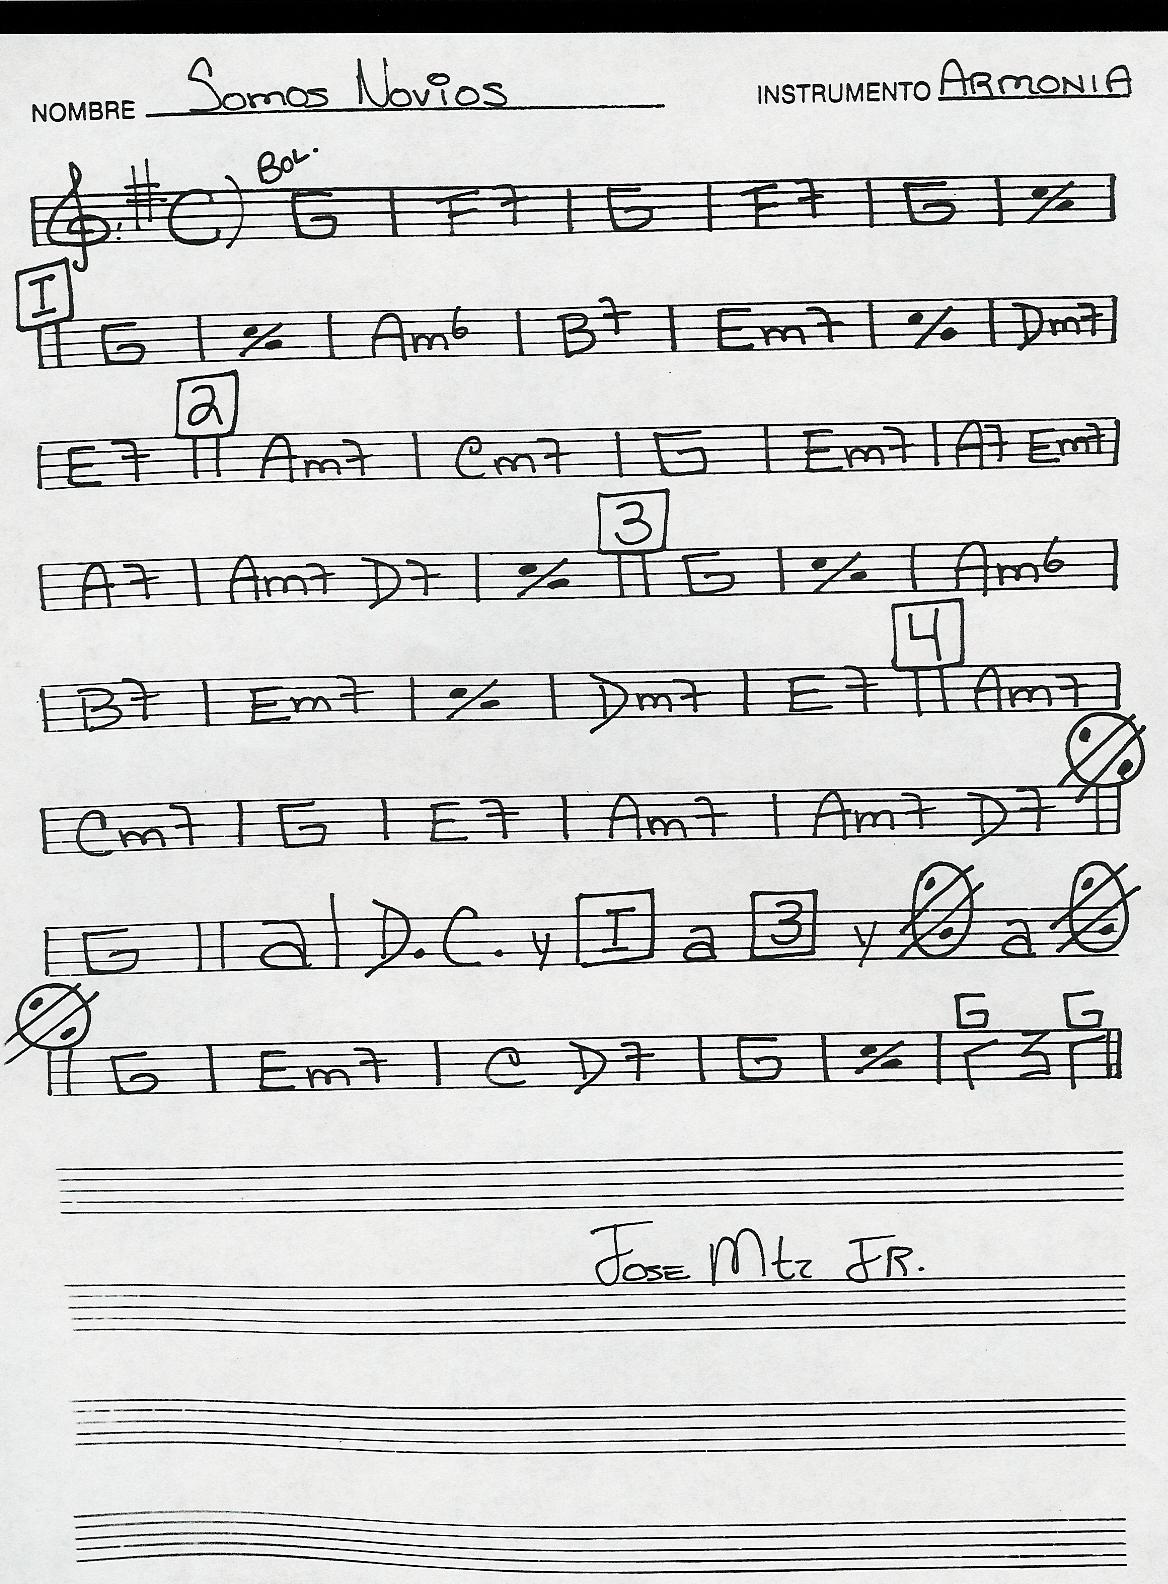 NOMBRE Somos Novios INSTRUMENTO ARMONIA
BOL.
C) G | F7 | G | F7 | G | %
I
G | % | Am6 | B7 | Em7 | % | Dm7
2
E7 || Am7 | Cm7 | G | Em7 | A7 Em7
3
A7 | Am7 D7 | % || G | % | Am6
4
B7 | Em7 | % | Dm7 | E7 || Am7
Cm7 | G | E7 | Am7 | Am7 D7
G || a | D.C. y I a 3 y a
G G
G | Em7 | C D7 | G | %
Jose Mtz JR.